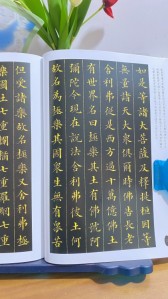 如是等諸大菩薩及釋提桓因等
無量諸天大衆俱爾時佛告長老
舍利弗從是西方過十萬億佛土
有世界名曰極樂其土有佛號阿
彌陀今現在說法舍利弗彼土何
故名為極樂其國衆生無有衆苦
但受諸樂故名極樂又舍利弗極
樂國土七重欄楯七重羅網七重